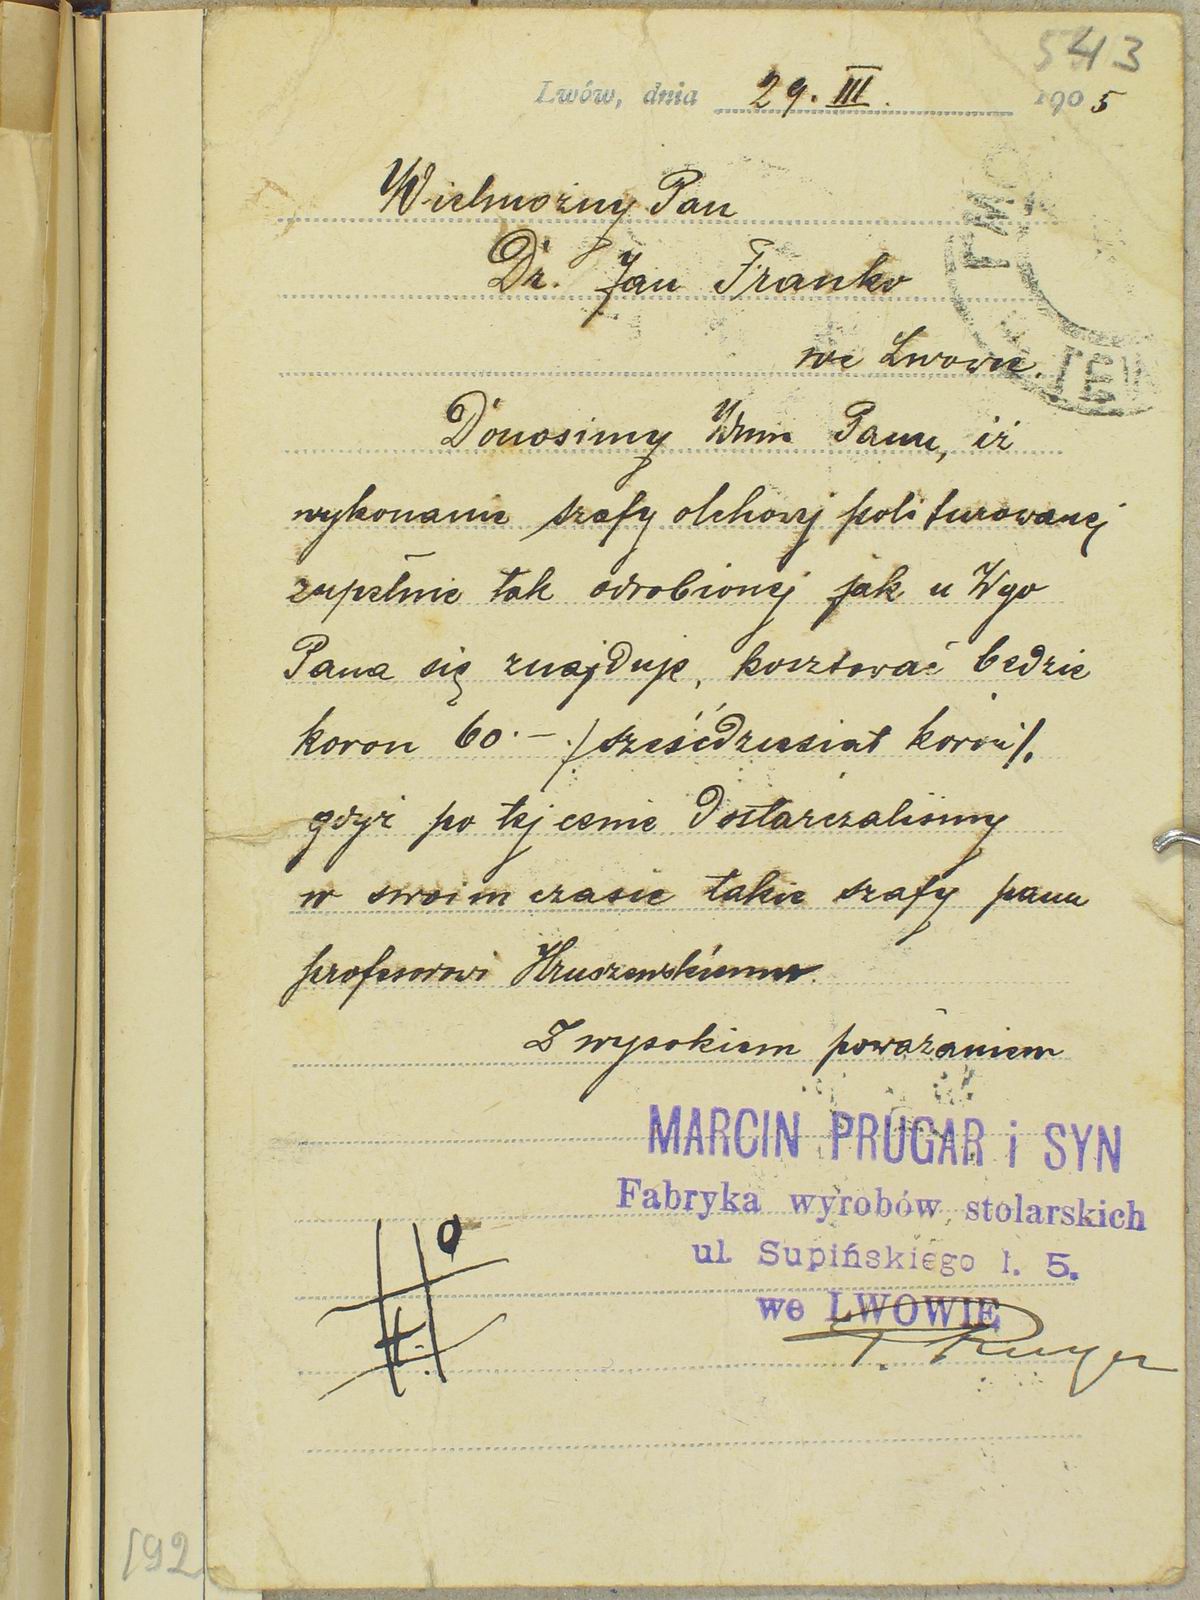 543
Lwów, dnia 29. III. 1905
Wielmożny Pan
Dr. Jan Franko
we Lwowie.
Donosimy Wmu Panu, iż
wykonanie szafy olchowej politurowanej
zupełnie tak odrobionej jak u Wgo
Pana się znajduje, kosztować będzie
koron 60.– ./sześćdziesiąt koron/.
gdyż po tej cenie dostarczaliśmy
w swoim czasie takie szafy panu
profesorowi Hruszewskiemu.
Z wysokiem poważaniem
MARCIN PRUGAR i SYN
Fabryka wyrobów stolarskich
ul. Supińskiego l. 5.
we LWOWIE
192